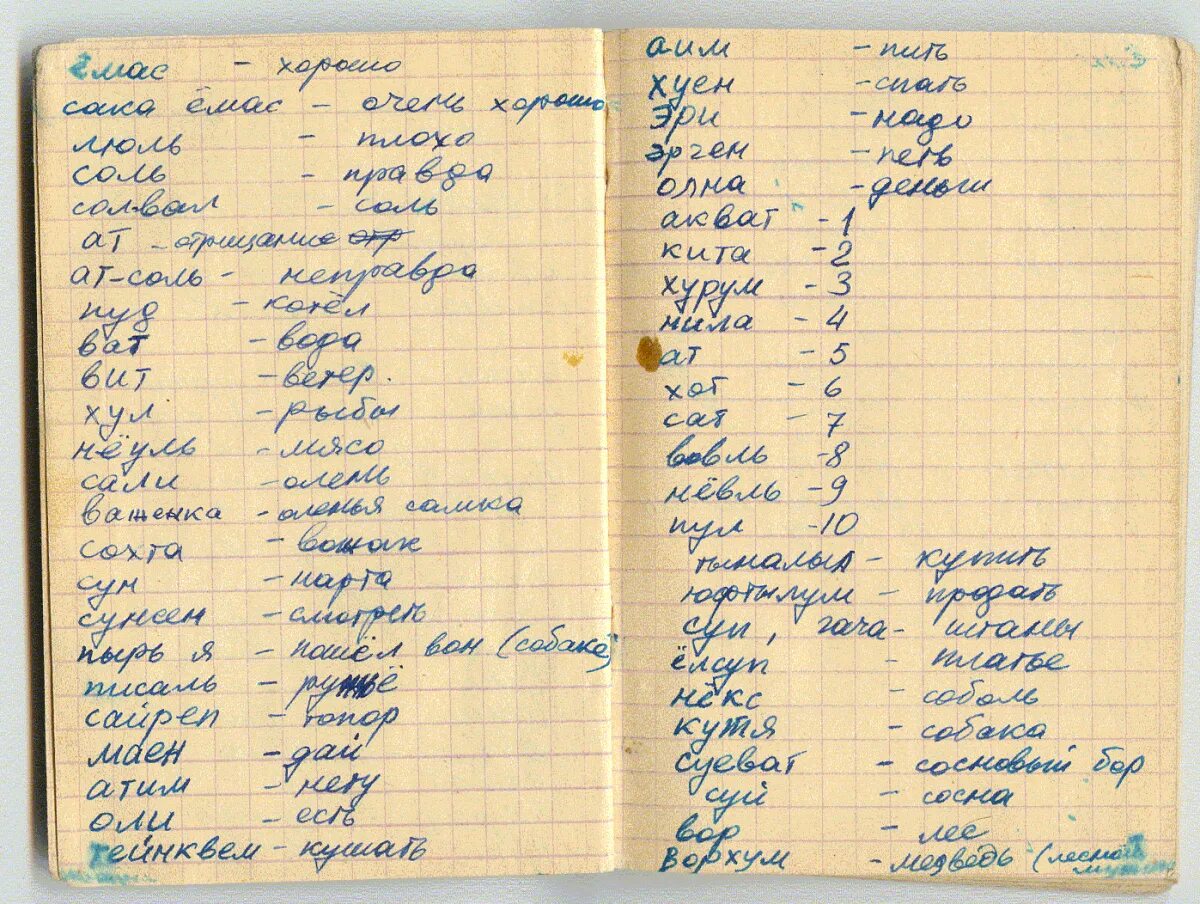 ёмас - хорошо
сака ёмас - очень хорошо
люль - плохо
соль - правда
солвал - соль
ат - отрицание отр
ат-соль - неправда
пуд - котёл
ват - вода
вит - ветер.
хул - рыбы
нёуль - мясо
сали - олень
важенка - оленья самка
сохта - вожак
сун - нарта
сунсен - смотреть
пырь я - пошёл вон (собаке)
писаль - ружьё
сайреп - топор
маен - дай
атим - нету
оли - есть
тейнквем - кушать
аим - пить
хуен - спать
эри - надо
эрген - петь
олна - деньги
акват - 1
кита - 2
хурум - 3
нила - 4
ат - 5
хот - 6
сат - 7
вовль - 8
нёвль - 9
пул - 10
тыналын - купить
юфтылум - продать
суп, гача - штаны
ёлсуп - платье
нёкс - соболь
кутя - собака
суеват - сосновый бор
суй - сосна
вор - лес
ворхум - медведь (лесной